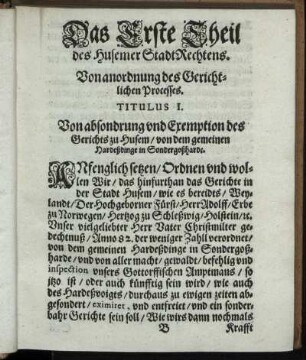 Das Erste Theil
des Husemer StadtRechtens.
Von anordnung des Gericht-
lichen Processes.
TITULUS I.
Von absondrung vnd Exemption des
Gerichts zu Husem / von dem gemeinen
Hardeßdinge in Sondergoßharde.
ANfenglich setzen / Ordnen vnd wol-
len Wir / das hinfurthan das Gerichte in
der Stadt Husem / wie es bereides / Wey-
landt / Der Hochgeborner Fürst / Herr Adolff / Erbe
zu Norwegen / Hertzog zu Schleßwig / Holstein / ꝛc.
Vnser vielgeliebter Herr Vater Christmilter ge-
dechtnuß / Anno 82. der weniger Zahl verordnet /
von dem gemeinen Hardeßdinge in Sondergoß-
harde / vnd von aller macht / gewaldt / befehlig vnd
inspection vnsers Gottorffischen Amptmans / so
jtzo ist / oder auch künfftig sein wird / wie auch
des Hardeßvoigts / durchaus zu ewigen zeiten ab-
gesondert / eximiret, vnd entfreiet / vnd ein sonder-
bahr Gerichte sein soll / Wie wirs dann nochmals
B Krafft